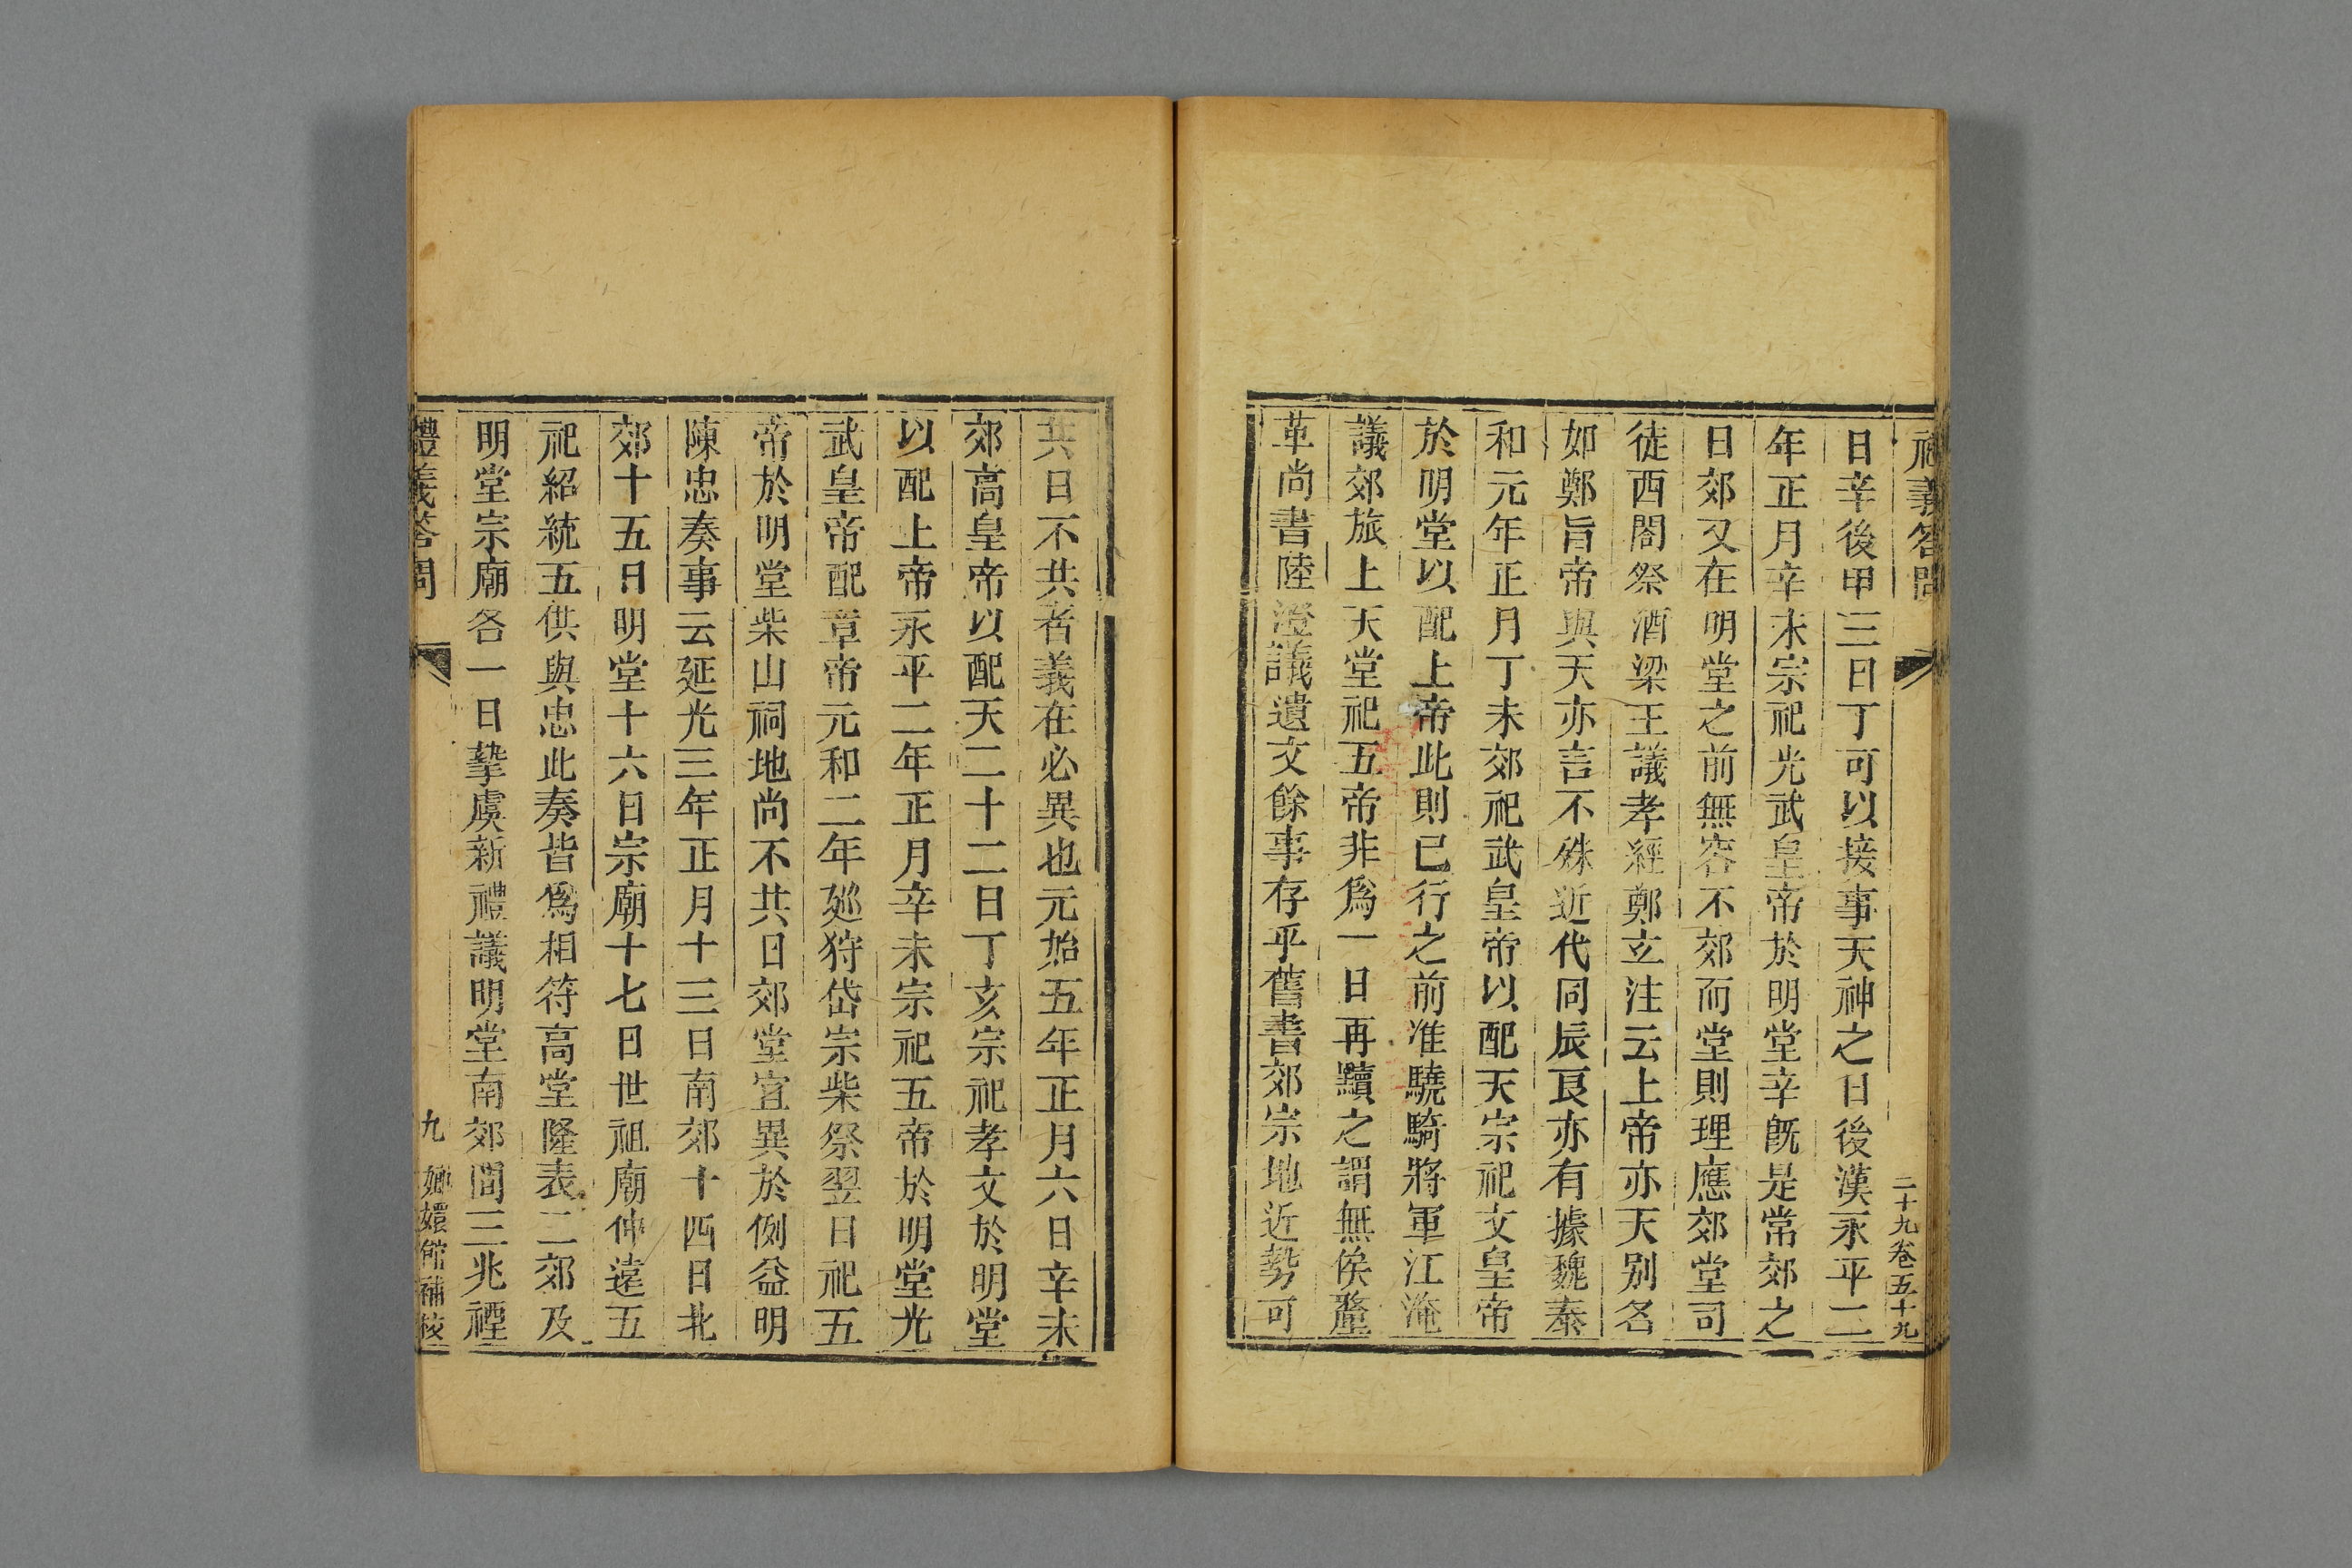 禮義答問
二十九卷五十九
日辛後甲三日丁可以接事天神之日後漢永平二
年正月辛未宗祀光武皇帝於明堂辛旣是常郊之
日郊又在明堂之前無容不郊而堂則理應郊堂司
徒西閤祭酒梁王議孝經鄭玄注云上帝亦天别名
如鄭旨帝與天亦言不殊近代同辰良亦有據魏泰
和元年正月丁未郊祀武皇帝以配天宗祀文皇帝
於明堂以配上帝此則已行之前准驍騎將軍江淹
議郊旅上天堂祀五帝非爲一日再黷之謂無俟釐
革尚書陸澄議遺文餘事存乎舊書郊宗地近勢可
共日不共者義在必異也元始五年正月六日辛未
郊高皇帝以配天二十二日丁亥宗祀孝文於明堂
以配上帝永平二年正月辛未宗祀五帝於明堂光
武皇帝配章帝元和二年廵狩岱宗柴祭翌日祀五
帝於明堂柴山祠地尚不共日郊堂宜異於例益明
陳忠奏事云延光三年正月十三日南郊十四日北
郊十五日明堂十六日宗廟十七日世祖廟仲遠五
祀紹統五供與忠此奏皆爲相符高堂隆表二郊及
明堂宗廟各一日摯虞新禮議明堂南郊間三兆禋
禮義答問
九
嫏嬛館補校